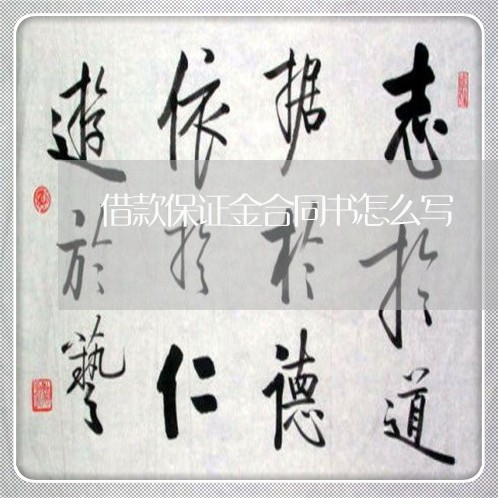 志於道
据於德
依於仁
遊於藝
借款保证金合同书怎么写